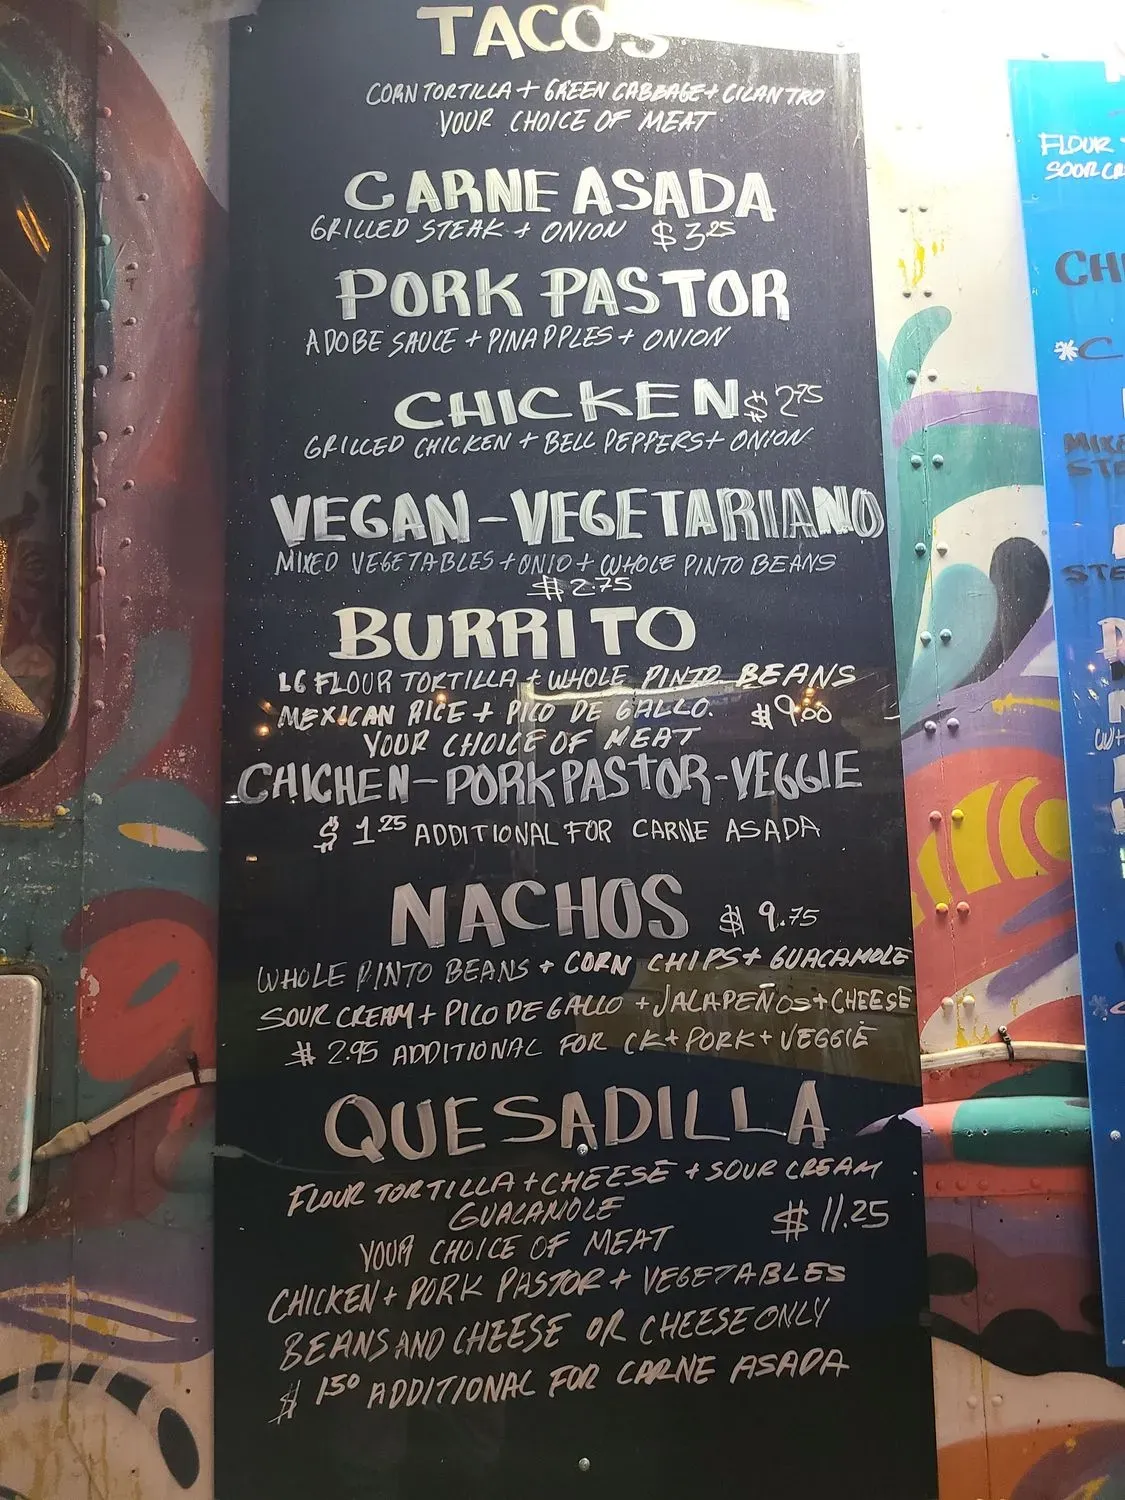 TACOS
CORN TORTILLA + GREEN CABBAGE + CILANTRO
YOUR CHOICE OF MEAT
CARNE ASADA
GRILLED STEAK + ONION $ 3.25
PORK PASTOR
ADOBE SAUCE + PINAPPLES + ONION
CHICKEN $ 2.75
GRILLED CHICKEN + BELL PEPPERS + ONION
VEGAN - VEGETARIANO
MIXED VEGETABLES + ONIO + WHOLE PINTO BEANS
$ 2.75
BURRITO
LG FLOUR TORTILLA + WHOLE PINTO BEANS
MEXICAN RICE + PICO DE GALLO. $ 9.00
YOUR CHOICE OF MEAT
CHICHEN - PORK PASTOR - VEGGIE
$ 1.25 ADDITIONAL FOR CARNE ASADA
NACHOS $ 9.75
WHOLE PINTO BEANS + CORN CHIPS + GUACAMOLE
SOUR CREAM + PICO DE GALLO + JALAPEÑOS + CHEESE
$ 2.95 ADDITIONAL FOR CK + PORK + VEGGIE
QUESADILLA
FLOUR TORTILLA + CHEESE + SOUR CREAM
GUACAMOLE $ 11.25
YOUR CHOICE OF MEAT
CHICKEN + PORK PASTOR + VEGETABLES
BEANS AND CHEESE OR CHEESE ONLY
$ 1.50 ADDITIONAL FOR CARNE ASADA
FLOUR